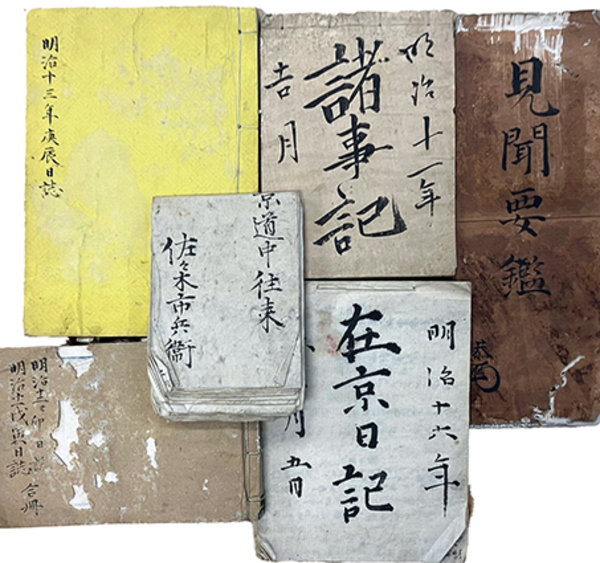 明治十三年庚辰日誌
明治十一年
諸事記
吉月
見聞要鑑
京道中往来
佐々木市兵衞
明治十六年
在京日記
月五日
明治十二卯日誌
明治十一戊寅日誌
合冊